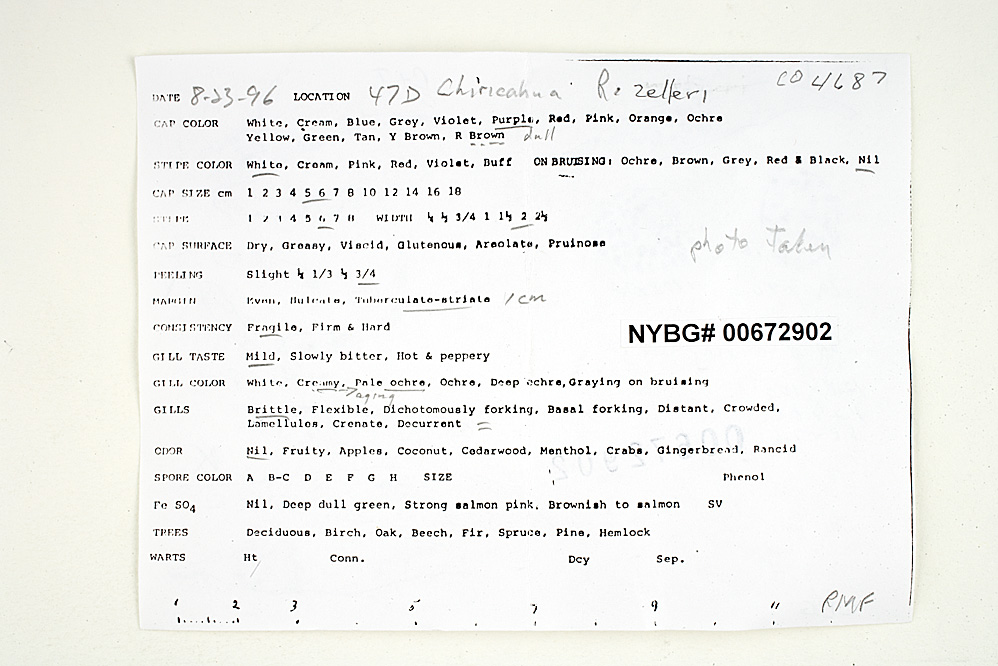 DATE 8-23-96 LOCATION 47D Chiricahua R. zelleri CO 4687
CAP COLOR White, Cream, Blue, Grey, Violet, Purple, Red, Pink, Orange, Ochre
Yellow, Green, Tan, Y Brown, R Brown dull
STIPE COLOR White, Cream, Pink, Red, Violet, Buff ON BRUISING: Ochre, Brown, Grey, Red & Black, Nil
CAP SIZE cm 1 2 3 4 5 6 7 8 10 12 14 16 18
STIPE 1 2 3 4 5 6 7 8 WIDTH ¼ ½ 3/4 1 1½ 2 2½
CAP SURFACE Dry, Greasy, Viscid, Glutenous, Areolate, Pruinose
photo taken
PEELING Slight ¼ 1/3 ½ 3/4
MARGIN Even, Sulcate, Tuberculate-striate 1 cm
CONSISTENCY Fragile, Firm & Hard
NYBG# 00672902
GILL TASTE Mild, Slowly bitter, Hot & peppery
GILL COLOR White, Creamy, Pale ochre, Ochre, Deep ochre, Graying on bruising
aging
GILLS Brittle, Flexible, Dichotomously forking, Basal forking, Distant, Crowded,
Lamellules, Crenate, Decurrent
ODOR Nil, Fruity, Apples, Coconut, Cedarwood, Menthol, Crabs, Gingerbread, Rancid
SPORE COLOR A B-C D E F G H SIZE Phenol
Fe SO4 Nil, Deep dull green, Strong salmon pink, Brownish to salmon SV
TREES Deciduous, Birch, Oak, Beech, Fir, Spruce, Pine, Hemlock
WARTS Ht Conn. Dcy Sep.
1 2 3 5 7 9 11 RMF